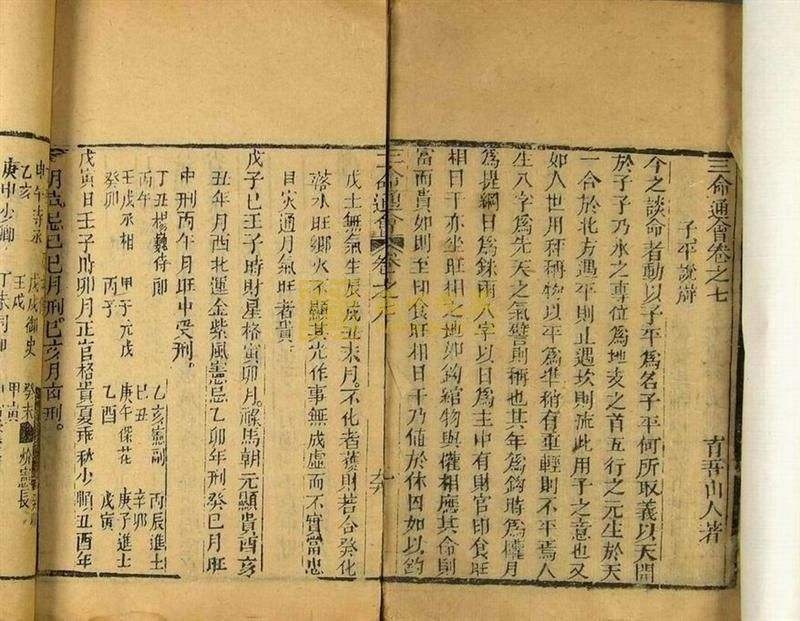 三命通會卷之七
育吾山人著
子平說辯
今之談命者動以子平爲名子平何所取義以天開
於子子乃水之專位爲地支之首五行之元生於天
一合於北方遇平則止遇坎則流此用子之意也又
如人世用秤稱物以平爲準稍有重輕則不平焉人
生八字爲先天之氣譬則稱也其年爲鈎時爲權月
爲提綱日爲銖兩八字以日爲主中有財官印食旺
相日干亦坐旺相之地如鈎綰物與權相應其命則
富而貴如則至印食旺相日干乃値於休囚如以鈎
三命通會 卷之
戊土無氣生辰戌丑未月不化者發財若合癸化
落水旺鄉火不顯其光作事無成虛而不實當忠
目災通月氣旺者貴
戊子巳壬子時財星格寅卯月祿馬朝元顯貴酉亥
丑年月西北運金紫風憲忌乙卯年刑癸巳月旺
中刑丙午月旺中受刑
丁丑楊巍侍郎 乙亥憲副 丙辰進士
丙午 甲子元戎 巳丑 辛卯
壬戌丞相 丙子 庚午保花 庚子進士
癸卯 乙酉 戊寅
戊寅日壬子時卯月正官格貴夏乖秋少順丑酉年
月哉忌巳巳月刑巳亥月南刑
甲午侍丞 戊戌御史 癸未 憲長
乙亥 壬戌 甲寅
庚申少卿 丁未